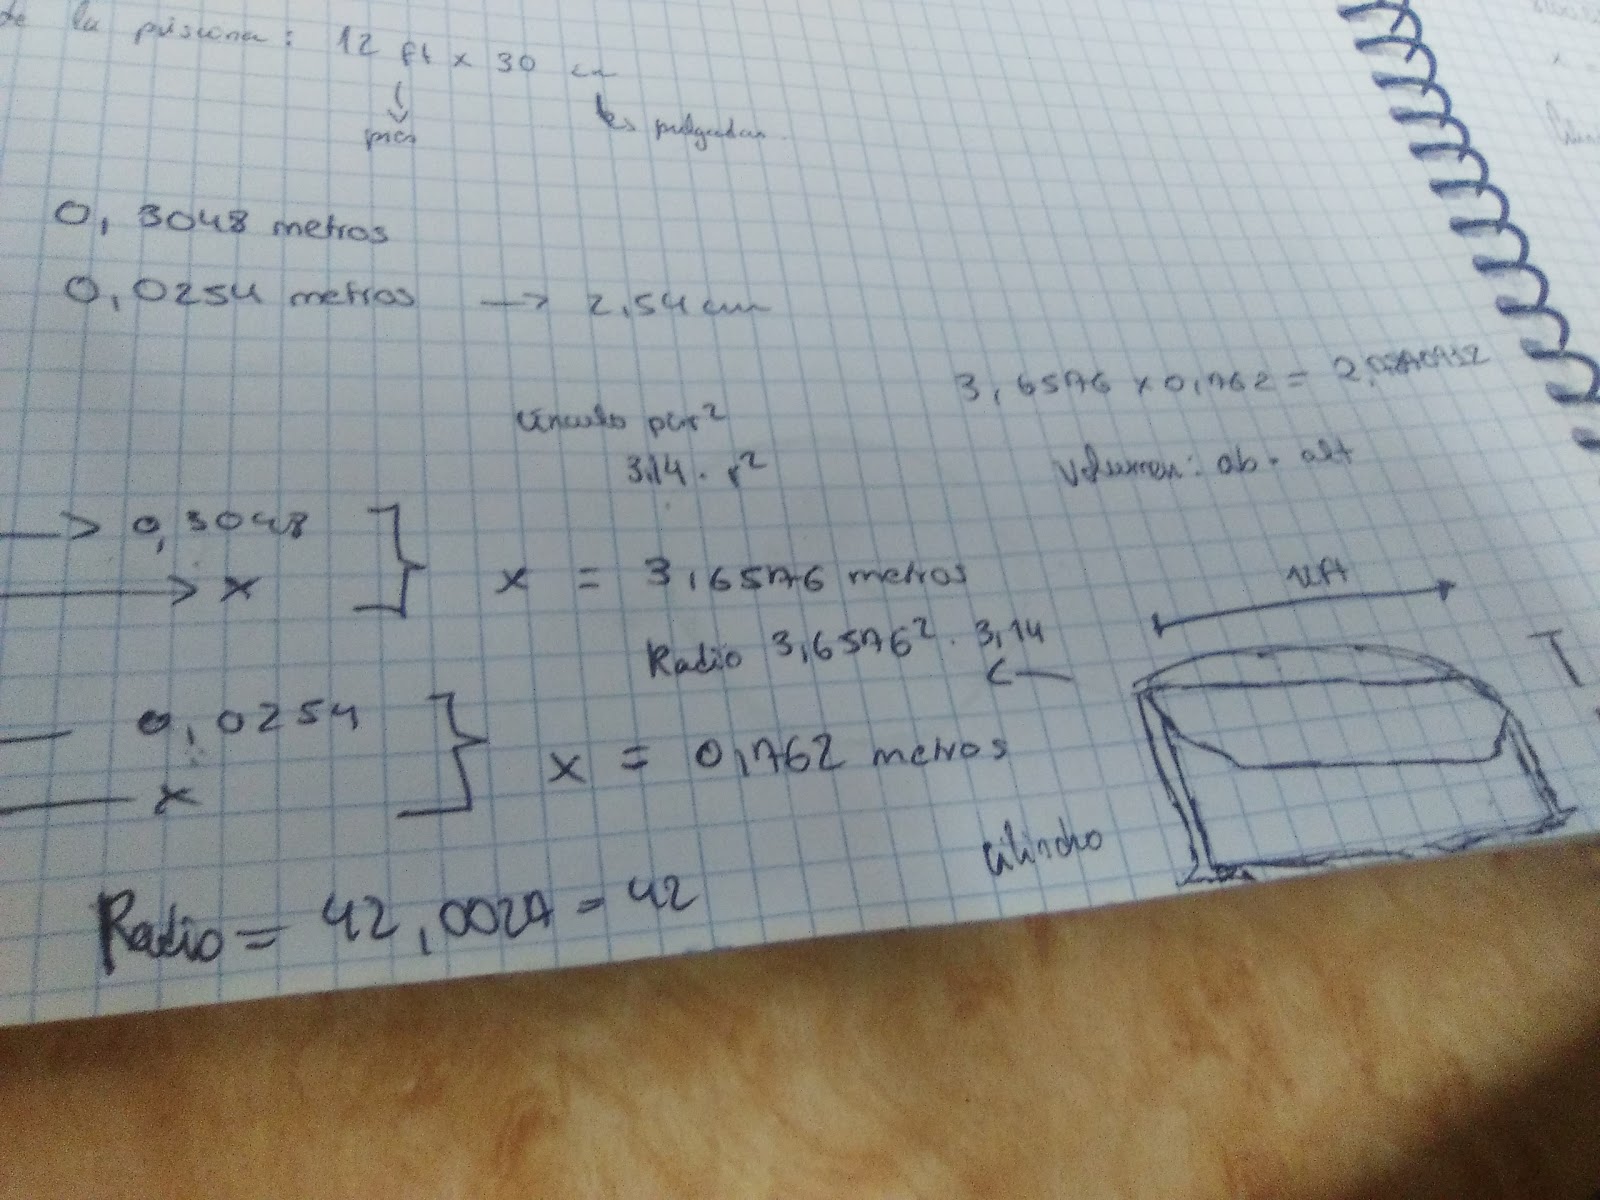 de la piscina: 12 ft x 30 cm
pies
pulgadas
0,3048 metros
0,0254 metros → 2,54 cm
3,6576 x 0,762 =
círculo pi·r²
3.14 · r²
volumen: ab · alt
→ 0,3048
→ x
x = 3,6576 metros
12ft
Radio 3,6576² · 3,14
0,0254
x
x = 0,762 metros
cilindro
Radio = 42,0027 = 42